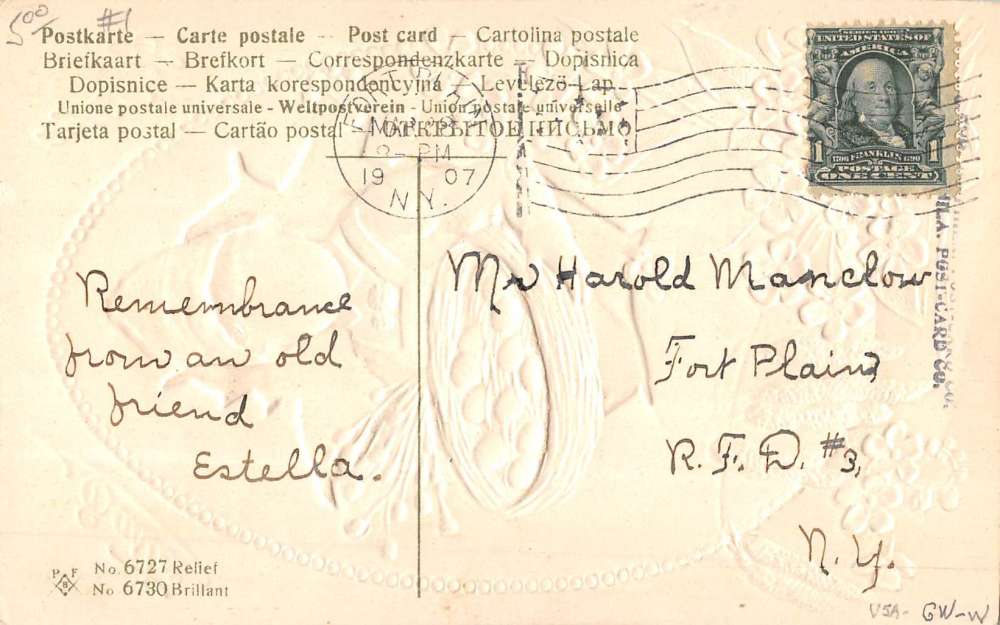 5.00 #1
Postkarte — Carte postale — Post card — Cartolina postale
Briefkaart — Brefkort — Correspondenzkarte — Dopisnica
Dopisnice — Karta korespondencyjna — Levelező-Lap
Unione postale universale - Weltpostverein - Union postale universelle
Tarjeta postal — Cartão postal — ОТКРЫТОЕ ПИСЬМО
PM
19 07
N.Y.
SERIES 1902
UNITED STATES OF
AMERICA
1 1706 FRANKLIN 1790 1
POSTAGE
ONE CENT
POST-CARD CO.
Remembrance
from an old
friend
Estella.
Mr Harold Manclow
Fort Plain,
R. F. D. #3,
N. Y.
P F
B
No. 6727 Relief
No 6730 Brillant
USA- GW-W